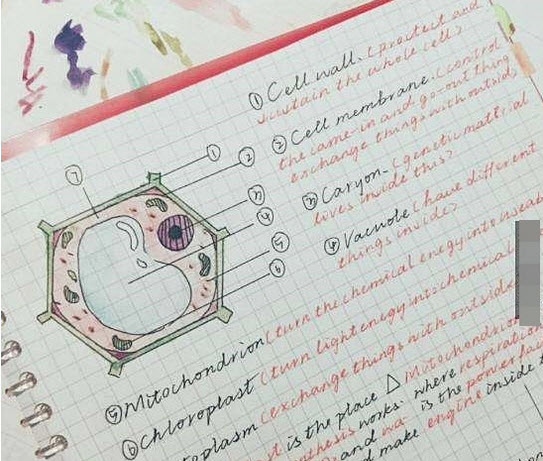 ① Cell wall. (protect and
sustain the whole cell)
② Cell membrane. (control
the came-in and go-out thing
exchange things with outside
③ Caryon. (genetic material
lives inside this)
④ Vacuole (have different
things inside)
⑤ Mitochondrion (turn the chemical enegy into
⑥ chloroplast (turn light enegy into chemical
toplasm (exchange things with outside
is the place △ Mitochondrion
thesis works. where respiration
and wa is the powerful
d make engine inside
⑦
①
②
③
④
⑤
⑥